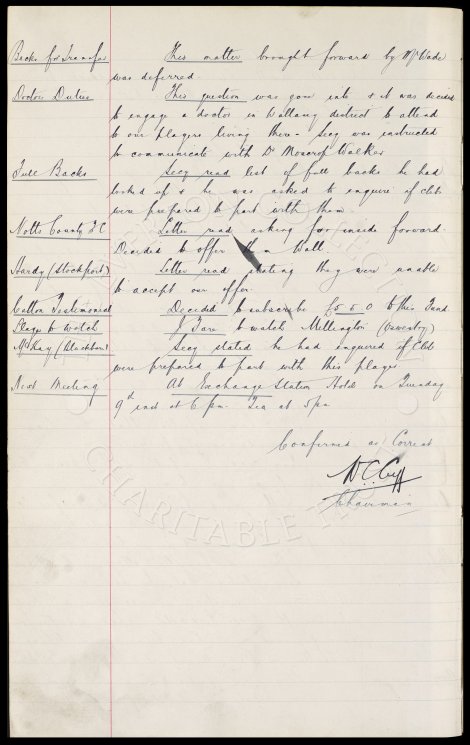 Backs for Transfer This matter brought forward by Mr Wade
was deferred.
Doctors Duties This question was gone into & it was decided
to engage a doctor in Waltong district to attend
to our players living there. Secy was instructed
to communicate with Dr Moscrop Walker
Full Backs Secy read list of full backs he had
looked up & he was asked to enquire if clubs
were prepared to part with them
Notts County F C Letter read asking for inside forward.
Decided to offer them Wall.
Hardy (Stockport) Letter read stating they were unable
to accept our offer.
Cotton Testimonial Decided to subscribe £5 5 0 to this Fund
Player to watch J Fare to watch Mellington (Oswestry)
McKay (Blackburn) Secy stated he had enquired if Club
were prepared to part with this player
Next Meeting At Exchange Station Hotel on Tuesday
9th inst at 6 pm. Tea at 5 pm
Confirmed as Correct
W.C. Cuff
Chairman
CHARITABLE